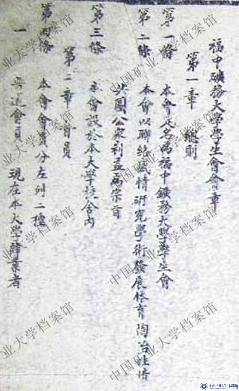 福中礦務大學學生會會章
第一章 總則
第一條 本會定名為福中礦務大學學生會
第二條 本會以聯絡感情研究學術發展體育陶冶性情
共圖公眾利益為宗旨
第三條 本會設於本大學校舍內
第二章 會員
第四條 本會會員分左列二種
一 普通會員 現在本大學肄業者
中国矿业大学档案馆